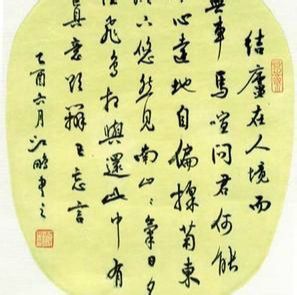 結廬在人境而
無車馬喧問君何能
心遠地自偏採菊東
下悠然見南山〻氣日夕
佳飛鳥相與還此中有
真意欲辯已忘言
乙酉六月江